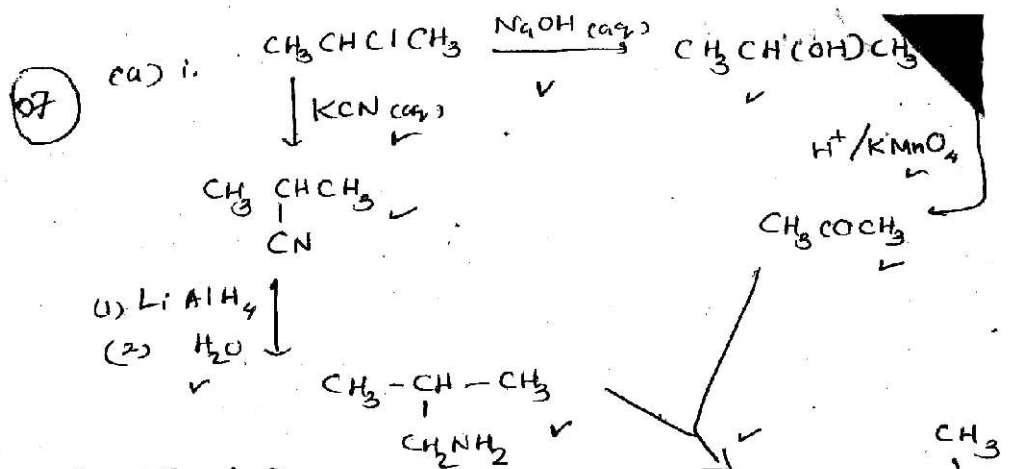 07 (a) i. CH3 CHCl CH3 NaOH (aq) CH3 CH(OH)CH3
KCN (aq)
H+/KMnO4
CH3 CHCH3
CN
CH3COCH3
(1) LiAlH4
(2) H2O
CH3 - CH - CH3
CH2NH2
CH3